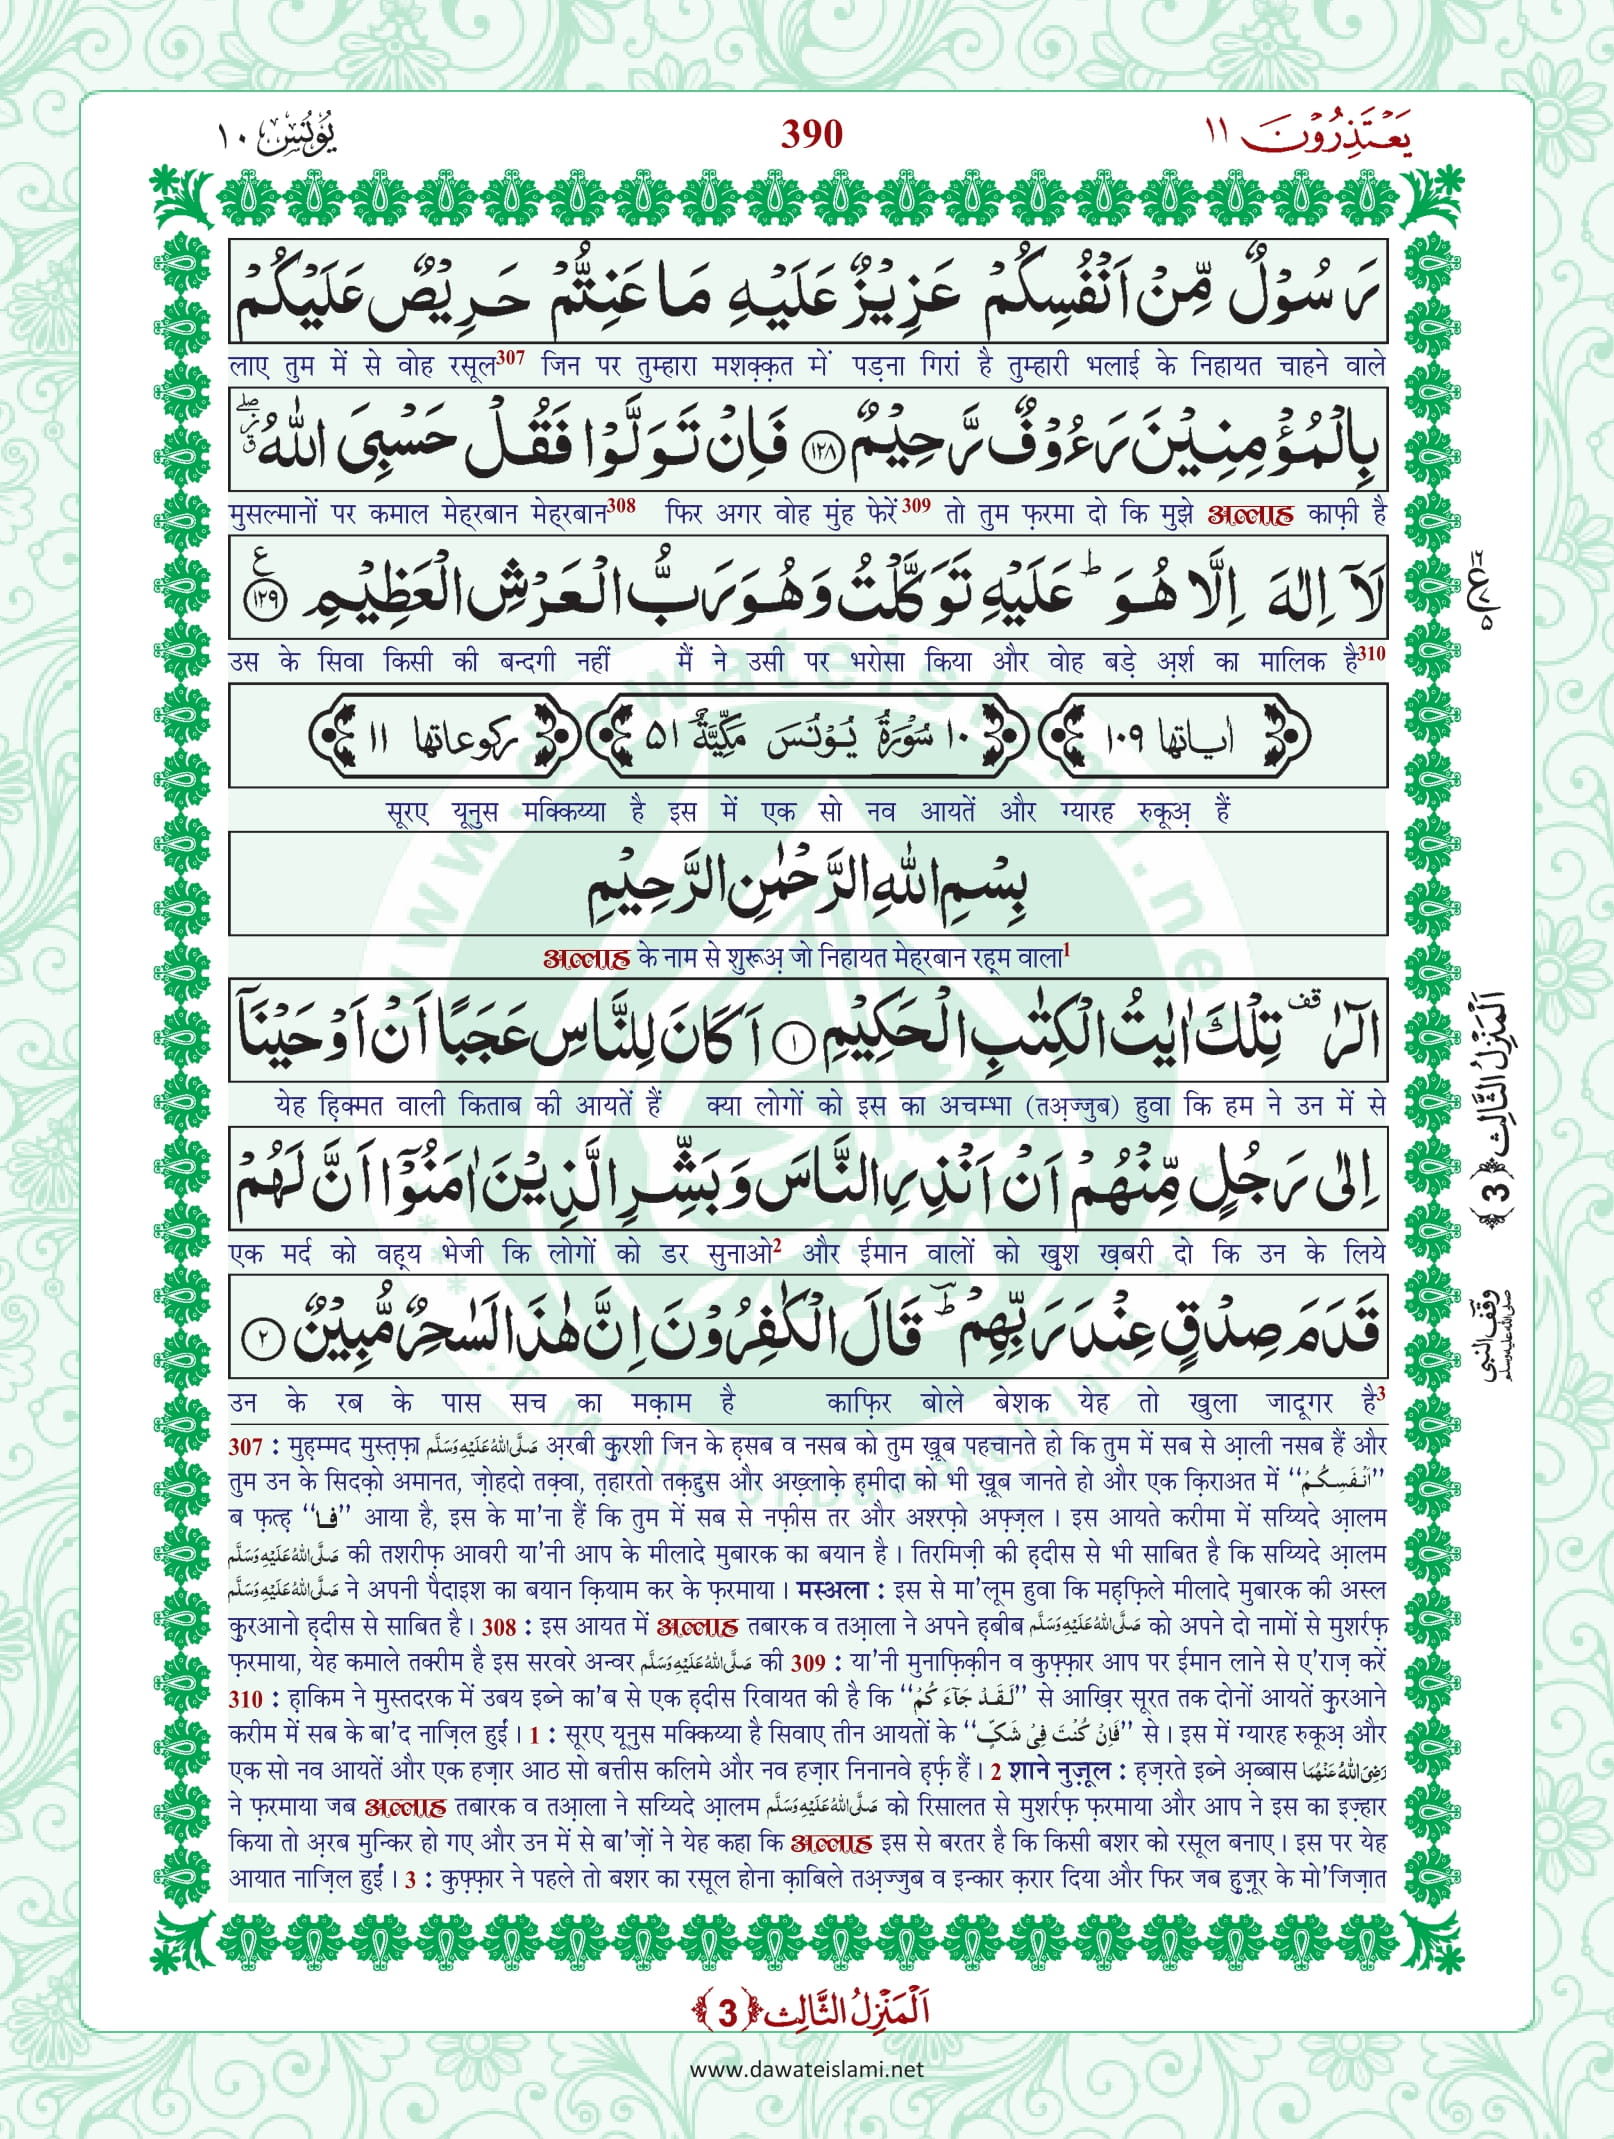 يَعْتَذِرُوْنَ ١١
390
يُوْنُس ١٠
رَسُوْلٌ مِّنْ اَنْفُسِكُمْ عَزِيْزٌ عَلَيْهِ مَا عَنِتُّمْ حَرِيْصٌ عَلَيْكُمْ
लाए तुम में से वोह रसूल307 जिन पर तुम्हारा मशक़्क़त में पड़ना गिरां है तुम्हारी भलाई के निहायत चाहने वाले
بِالْمُؤْمِنِيْنَ رَءُوْفٌ رَّحِيْمٌ ﴿١٢٨﴾ فَاِنْ تَوَلَّوْا فَقُلْ حَسْبِيَ اللّٰهُ ۖ٘ق
मुसल्मानों पर कमाल मेह्‌रबान मेह्‌रबान308 फिर अगर वोह मुंह फेरें309 तो तुम फ़रमा दो कि मुझे अल्लाह काफ़ी है
لَاۤ اِلٰهَ اِلَّا هُوَ ؕ عَلَيْهِ تَوَكَّلْتُ وَهُوَ رَبُّ الْعَرْشِ الْعَظِيْمِ ﴿١٢٩﴾ ع
उस के सिवा किसी की बन्दगी नहीं मैं ने उसी पर भरोसा किया और वोह बड़े अ़र्श का मालिक है310
اٰیاتها ١٠٩
١٠ سُوْرَةُ يُوْنُسَ مَكِّيَّةٌ ٥١
ركوعاتها ١١
सूरए यूनुस मक्किय्या है इस में एक सो नव आयतें और ग्यारह रुकूअ़ हैं
بِسْمِ اللّٰهِ الرَّحْمٰنِ الرَّحِيْمِ
अल्लाह के नाम से शुरूअ़ जो निहायत मेह्‌रबान रह़्म वाला1
الٓرٰ ࣞ تِلْكَ اٰيٰتُ الْكِتٰبِ الْحَكِيْمِ ﴿١﴾ اَكَانَ لِلنَّاسِ عَجَبًا اَنْ اَوْحَيْنَاۤ
येह ह़िक्मत वाली किताब की आयतें हैं क्या लोगों को इस का अचम्भा (तअ़ज्जुब) हुवा कि हम ने उन में से
اِلٰى رَجُلٍ مِّنْهُمْ اَنْ اَنْذِرِ النَّاسَ وَبَشِّرِ الَّذِيْنَ اٰمَنُوْۤا اَنَّ لَهُمْ
एक मर्द को वह़्‌य भेजी कि लोगों को डर सुनाओ2 और ईमान वालों को ख़ुश ख़बरी दो कि उन के लिये
قَدَمَ صِدْقٍ عِنْدَ رَبِّهِمْ ؔؕ قَالَ الْكٰفِرُوْنَ اِنَّ هٰذَا لَسٰحِرٌ مُّبِيْنٌ ﴿٢﴾
उन के रब के पास सच का मक़ाम है काफ़िर बोले बेशक येह तो खुला जादूगर है3
307 : मुह़म्मद मुस्त़फ़ा صَلَّى اللهُ عَلَيْهِ وَسَلَّم अ़रबी क़ुरशी जिन के ह़सब व नसब को तुम ख़ूब पहचानते हो कि तुम में सब से आ़ली नसब हैं और
तुम उन के सिदक़ो अमानत, ज़ोहदो तक़्वा, त़हारतो तक़द्दुस और अख़्लाक़े ह़मीदा को भी ख़ूब जानते हो और एक क़िराअत में “اَنْفَسِكُمْ”
ब फ़त्ह़ “فا” आया है, इस के मा'ना हैं कि तुम में सब से नफ़ीस तर और अशरफ़ो अफ़्ज़ल । इस आयते करीमा में सय्यिदे आ़लम
صَلَّى اللهُ عَلَيْهِ وَسَلَّم की तशरीफ़ आवरी या'नी आप के मीलादे मुबारक का बयान है । तिरमिज़ी की ह़दीस से भी साबित है कि सय्यिदे आ़लम
صَلَّى اللهُ عَلَيْهِ وَسَلَّم ने अपनी पैदाइश का बयान क़ियाम कर के फ़रमाया । मस्अला : इस से मा'लूम हुवा कि मह़फ़िले मीलादे मुबारक की अस्ल
क़ुरआनो ह़दीस से साबित है । 308 : इस आयत में अल्लाह तबारक व तआ़ला ने अपने ह़बीब صَلَّى اللهُ عَلَيْهِ وَسَلَّم को अपने दो नामों से मुशर्रफ़
फ़रमाया, येह कमाले तक्रीम है इस सरवरे अन्वर صَلَّى اللهُ عَلَيْهِ وَسَلَّم की 309 : या'नी मुनाफ़िक़ीन व कुफ़्फ़ार आप पर ईमान लाने से ए'राज़ करें
310 : ह़ाकिम ने मुस्तदरक में उबय इब्ने का'ब से एक ह़दीस रिवायत की है कि “لَقَدْ جَآءَ كُمْ” से आख़िर सूरत तक दोनों आयतें क़ुरआने
करीम में सब के बा'द नाज़िल हुईं । 1 : सूरए यूनुस मक्किय्या है सिवाए तीन आयतों के “فَاِنْ كُنْتَ فِيْ شَكٍّ” से । इस में ग्यारह रुकूअ़ और
एक सो नव आयतें और एक हज़ार आठ सो बत्तीस कलिमे और नव हज़ार निनानवे ह़र्फ़ हैं । 2 शाने नुज़ूल : ह़ज़रते इब्ने अ़ब्बास رَضِيَ اللهُ عَنْهُمَا
ने फ़रमाया जब अल्लाह तबारक व तआ़ला ने सय्यिदे आ़लम صَلَّى اللهُ عَلَيْهِ وَسَلَّم को रिसालत से मुशर्रफ़ फ़रमाया और आप ने इस का इज़्हार
किया तो अ़रब मुन्किर हो गए और उन में से बा'ज़ों ने येह कहा कि अल्लाह इस से बरतर है कि किसी बशर को रसूल बनाए । इस पर येह
आयात नाज़िल हुईं । 3 : कुफ़्फ़ार ने पहले तो बशर का रसूल होना क़ाबिले तअ़ज्जुब व इन्कार क़रार दिया और फिर जब हुज़ूर के मो'जिज़ात
١٦ ع ٥
اَلْمَنْزِلُ الثَّالِث ﴿3﴾
وقف النبی صلی اللہ علیہ وسلم
اَلْمَنْزِلُ الثَّالِث ﴿3﴾
www.dawateislami.net